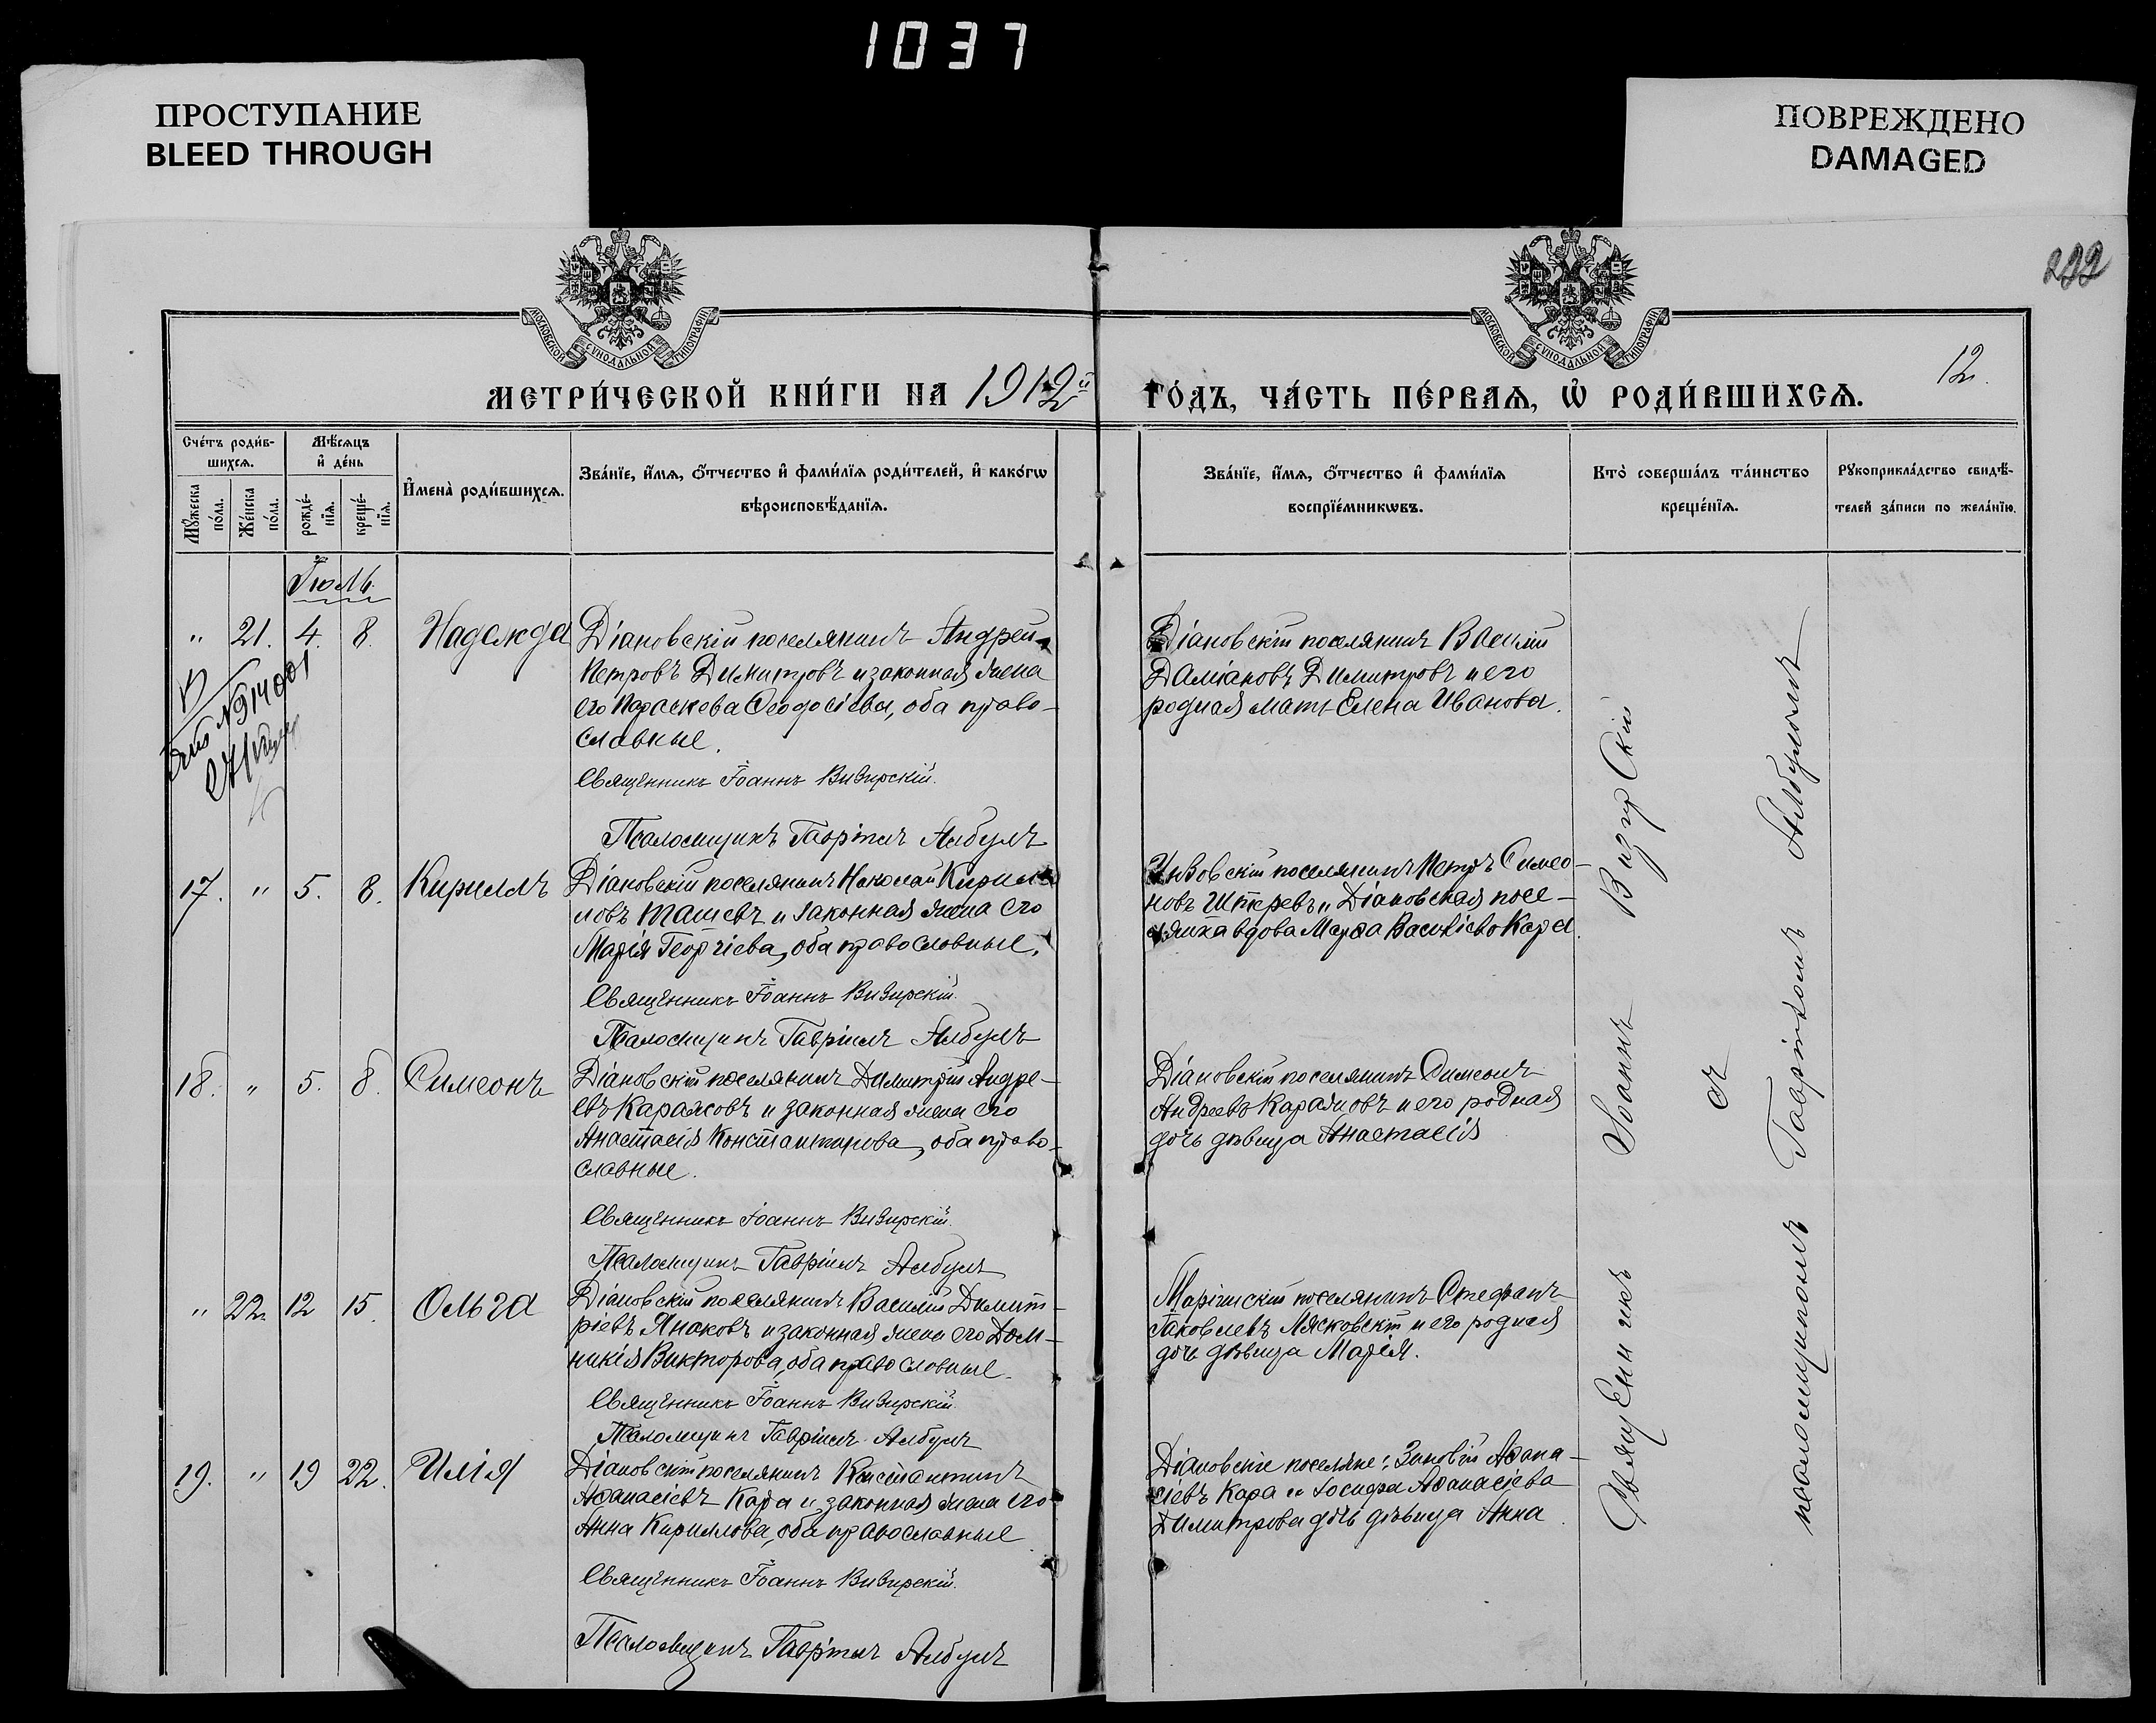 1037
ПРОСТУПАНИЕ
BLEED THROUGH
ПОВРЕЖДЕНО
DAMAGED
222
МОСКОВСКОЙ СУНОДАЛЬНОЙ ТИПОГРАФІИ
МОСКОВСКОЙ СУНОДАЛЬНОЙ ТИПОГРАФІИ
12.
МЕТРИ́ЧЕСКОЙ КНИ́ГИ НА 1912й ГО́ДЪ, ЧА́СТЬ ПЕ́РВАѦ, Ѡ҆ РОДИ́ВШИХСѦ.
Сче́тъ роди́в-
шихсѧ.
Мꙋ́жеска по́ла.
Же́нска по́ла.
Мѣ́сѧцъ
и҆ де́нь
рожде́-
нїѧ.
креще́-
нїѧ.
И҆мена̀ роди́вшихсѧ.
Зва́нїе, и҆́мѧ, ѻ҆́тчество и҆ фами́лїѧ роди́телей, и҆ како́гѡ
вѣроисповѣ́данїѧ.
Зва́нїе, и҆́мѧ, ѻ҆́тчество и҆ фами́лїѧ
воспрїе́мникѡвъ.
Кто̀ соверша́лъ та́инство
креще́нїѧ.
Рꙋкоприкла́дство свидѣ́-
телей за́писи по жела́нїю.
Іюль.
" 21. 4. 8. Надежда
Діановскій поселянинъ Андрей
Петровъ Димитровъ и законная жена
его Параскева Ѳеодосіева, оба право-
славные.
Священникъ Іоаннъ Визирскій.
Псаломщикъ Гавріилъ Албулъ
Діановскій поселянинъ Василій
Даміановъ Димитровъ и его
родная мать Елена Иванова.
№ 14001
17. " 5. 8. Кириллъ
Діановскій поселянинъ Николай Кирил-
ловъ Ташевъ и законная жена его
Марія Георгіева, оба православные.
Священникъ Іоаннъ Визирскій.
Псаломщикъ Гавріилъ Албулъ
поселянинъ Петръ Симео-
новъ и Діановская посе-
лянка вдова Марѳа Василіева Кара.
18. " 5. 8. Симеонъ
Діановскій поселянинъ Димитрій Андре-
евъ Каражовъ и законная жена его
Анастасія Константинова, оба право-
славные.
Священникъ Іоаннъ Визирскій.
Псаломщикъ Гавріилъ Албулъ
Діановскій поселянинъ Симеонъ
Андреевъ Каражовъ и его родная
дочь дѣвица Анастасія
" 22. 12 15. Ольга
Діановскій поселянинъ Василій Димит-
ріевъ Янаковъ и законная жена его Дом-
никія Викторова, оба православные.
Священникъ Іоаннъ Визирскій.
Псаломщикъ Гавріилъ Албулъ
поселянинъ Стефанъ
Іаковлевъ Лясковскій и его родная
дочь дѣвица Марія.
19. " 19 22. Илія
Діановскій поселянинъ Константинъ
Аѳанасіевъ Кара и законная жена его
Анна Кириллова, оба православные
Священникъ Іоаннъ Визирскій.
Псаломщикъ Гавріилъ Албулъ
Діановскіе поселяне: Зиновій Аѳана-
сіевъ Кара и Іосифа Аѳанасіева
Димитрова дочь дѣвица Анна.
Священникъ Іоаннъ Визирскій
съ
псаломщикомъ Гавріиломъ Албуломъ